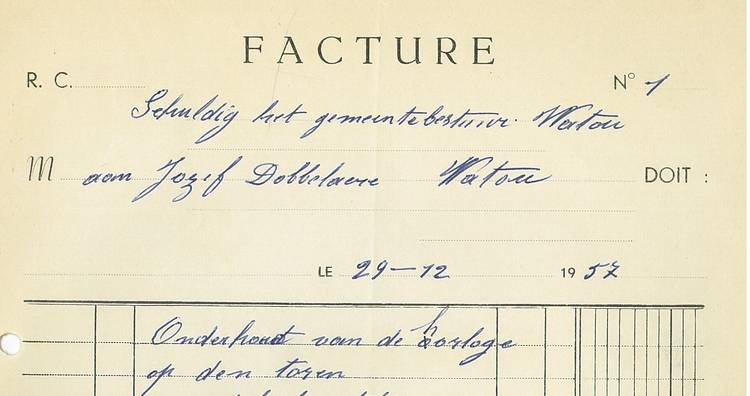 FACTURE
R. C. N° 1
Schuldig het gemeentebestuur. Watou
M aan Jozef Dobbelaere Watou DOIT :
LE 29-12 1957
Onderhoud van de horloge
op den toren